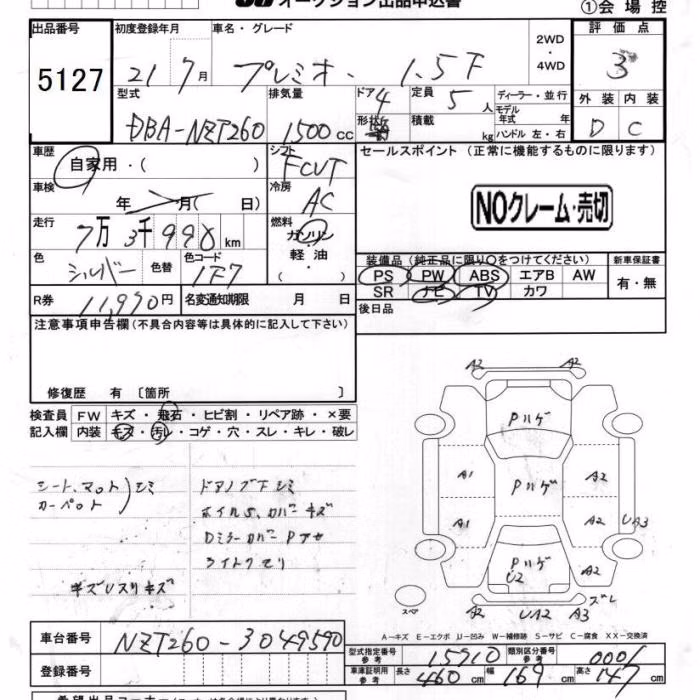 オークション出品申込書
①会場控
出品番号 初度登録年月 車名・グレード 評価点
5127 21 7月 プレミオ. 1.5F 2WD・4WD 3
型式 排気量 ドア 4 定員 5人 ディーラー・並行 外装 内装
DBA-NZT260 1500cc 形状 積載 kg モデル年式 年 ハンドル 左・右 D C
車歴 シフト セールスポイント (正常に機能するものに限ります)
自家用・( ) FCVT
車検 年 月( 日) 冷房 AC NOクレーム・売切
走行 7万3千990km 燃料 ガソリン・軽油・( )
装備品(純正品に限り○をつけてください) 新車保証書
色 シルバー 色替 色コード 1F7 PS PW ABS エアB AW 有・無
SR ナビ TV カワ
R券 11,990円 名変通知期限 月 日 後日品
注意事項申告欄(不具合内容等は具体的に記入して下さい)
修復歴 有 [箇所 ]
検査員 FW キズ・飛石・ヒビ割・リペア跡・×要
記入欄 内装 キズ・汚レ・コゲ・穴・スレ・キレ・破レ
シート、マット シミ ドアノブ下シミ
カーペット ホイルS.カバーキズ
DミラーカバーPアセ
ライトクモリ
キズUスリキズ
A2 A2
Pハゲ
A1 Pハゲ A2
A1 A2 UA3
Pハゲ
U2 A2
スペア A2 UA2 A3 ズレ
A−キズ E−エクボ U−凹み W−補修跡 S−サビ C−腐食 XX−交換済
車台番号 NZT260-3049590
型式指定番号 参考 15910 類別区分番号 参考 0001
登録番号 車庫証明用 参考 長さ 460cm 幅 169cm 高さ 147cm
希望出品コーナー